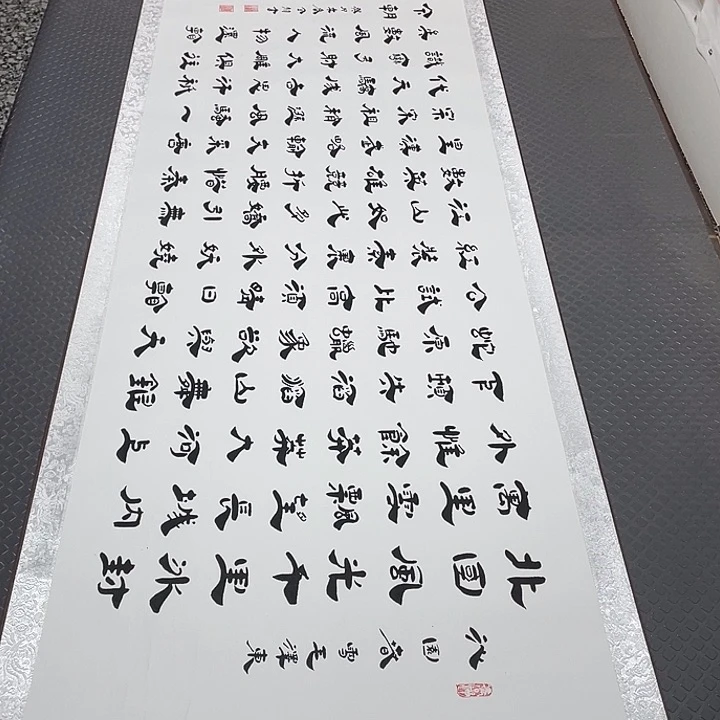 沁園春雪毛澤東
北國風光千里冰封
萬里雪飄望長城内
外惟餘莽莽大河上
下頓失滔滔山舞銀
蛇原馳蠟象欲與天
公試比高須晴日看
紅裝素裹分外妖嬈
江山如此多嬌引無
數英雄競折腰惜秦
皇漢武略輸文采唐
宗宋祖稍遜風騷一
代天驕成吉思汗祇
識彎弓射大雕俱往
矣數風流人物還看
今朝